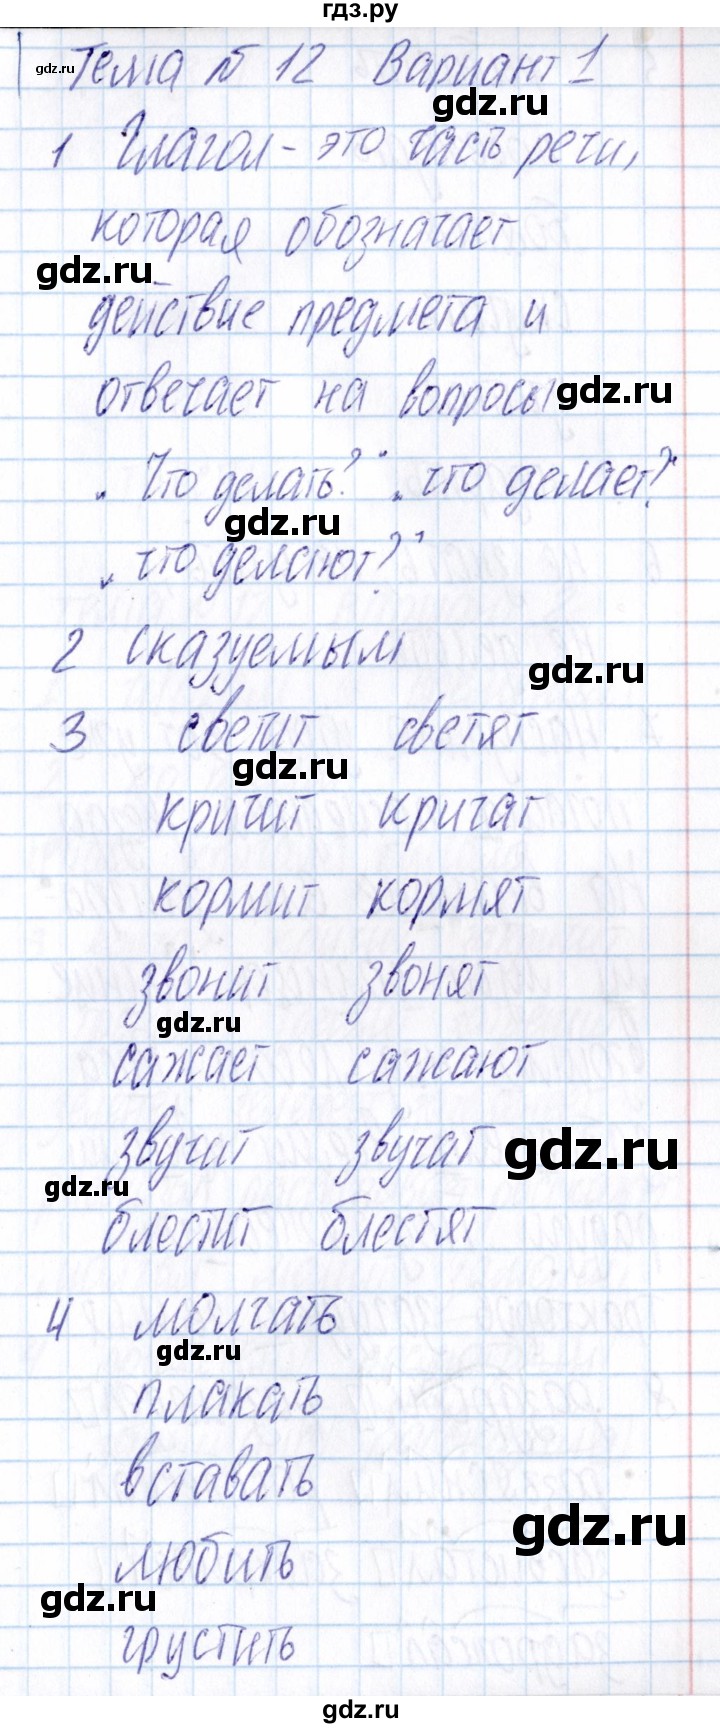 гдз.ру
gdz.ru
Тема № 12 Вариант 1
gdz.ru
1 Глагол - это часть речи,
которая обозначает
gdz.ru
действие предмета и
отвечает на вопросы
gdz.ru
„Что делать?" „что делает?"
gdz.ru
„что делают?"
2 сказуемым
gdz.ru
3 светит светят
gdz.ru
кричит кричат
кормит кормят
звонит звонят
gdz.ru
сажает сажают
звучит звучат
gdz.ru
gdz.ru
блестит блестят
4 молчать
gdz.ru
плакать
вставать
gdz.ru
любить
gdz.ru
грустить
gdz.ru